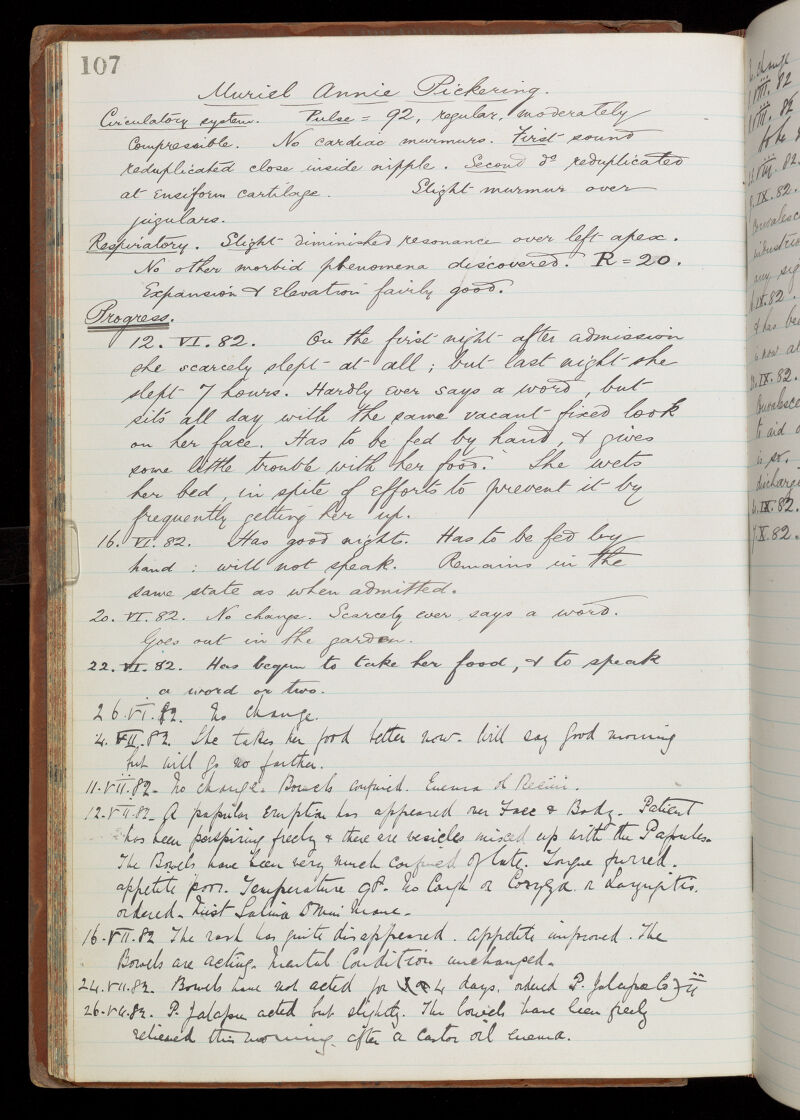 107
Muriel Annie Pickering.
Circulatory system. Pulse = 92, regular, moderately
Compressible. No cardiac murmurs. First sound
reduplicated close inside nipple. Second do reduplicated
at Ensiform cartilage. Slight murmur over
jugulars.
Respiratory. Slight diminished resonance over left apex.
No other morbid phenomena discovered. R = 20.
Expansion & Elevation fairly good.
Progress.
12. VI. 82. On the first night after admission
she scarcely slept at all; but last night she
slept 7 hours. Hardly ever says a word, but
sits all day with the same vacant fixed look
on her face. Has to be fed by hand, & gives
some little trouble with her food. She wets
her bed, in spite of efforts to prevent it by
frequently getting her up.
16. VI. 82. Has good night. Has to be fed by
hand: will not speak. Remains in the
same state as when admitted.
20. VI. 82. No change. Scarcely ever says a word.
Goes out in the garden.
22. VI. 82. Has begun to take her food, & to speak
a word or two.
26. VI. 82. No change.
4. VII. 82. She takes her food better now. Will say Good morning
but will go no further.
11. VII. 82. No change. Bowels confined. Enema ol Recini.
12. VII. 82. A papular Eruption has appeared over Face & Body. Patient
has been perspiring freely & there are vesicles mixed up with the Papules.
The Bowels have been very much confined of late. Tongue furred.
appetite poor. Temperature 98. No Cough or Coryza or Laryngitis.
ordered Mist Salina Omni Mane.
16. VII. 82 The rash has quite disappeared. Appetite improved. The
Bowels are acting. Mental Condition unchanged.
24. VII. 82. Bowels have not acted for 4 days. ordered P. Jalapae Co ʒii
26. VII. 82. P. Jalapae acted but slightly. The bowels have been freely
relieved this morning after a castor oil enema.
change
VIII. 82
VIII. 82
to be
VIII. 82.
IX. 82.
Convalesc
industrio
any sig
IX. 82.
& has be
is now at
IX. 82.
Convalesce
to aid
is so.
discharge
IX. 82.
X. 82.